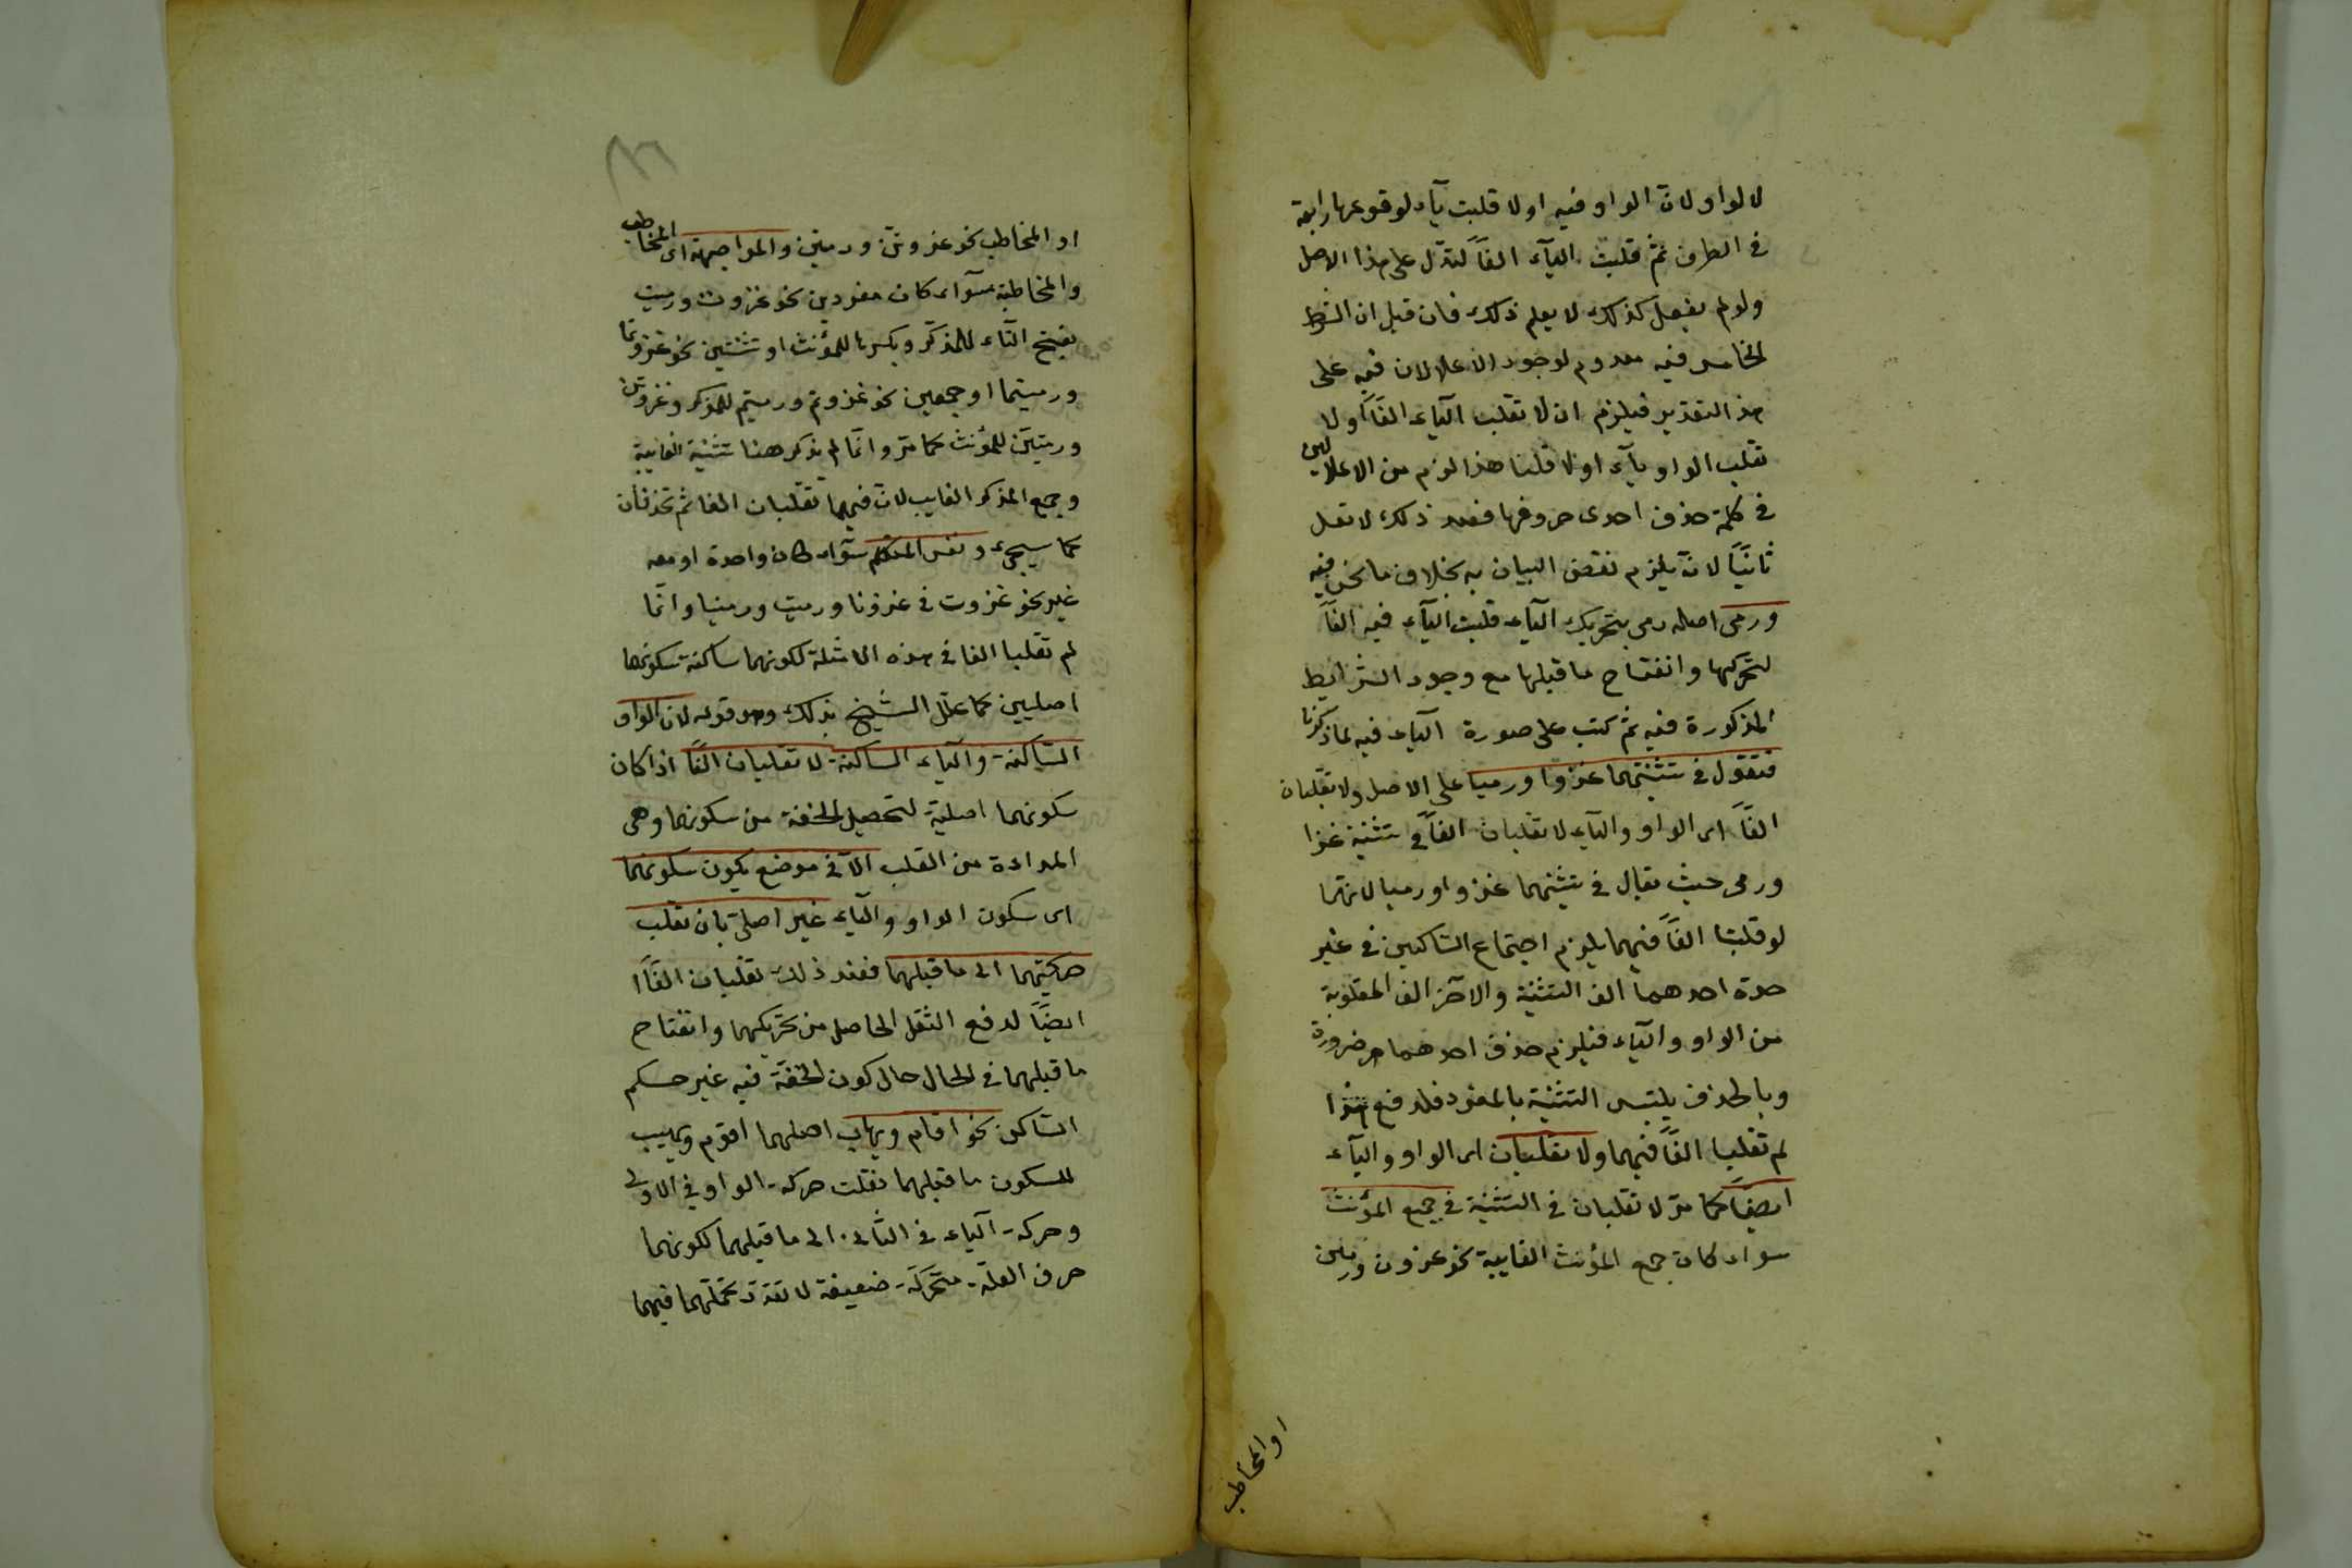 لا لواو لان الواو فيه اولا قلبت يآء لوقوعها رابعة
في الطرف ثم قلبت اليآء الفاً لتدل على هذا الاصل
ولو لم يفعل كذلك لا يعلم ذلك فان قيل ان الشرط
الخامس فيه معدوم لوجود الاعلالان فيه على
هذا التقدير فيلزم ان لا تقلب اليآء الفاً اولا
تقلب الواو يآء اولا قلنا هذا لزم من الاعلالين
في كلمة حذف احدى حروفها فبعد ذلك لا تعل
ثانياً لانه يلزم نقض البيان به بخلاف ما نحن فيه
ورمى اصله رمى بتحريك اليآء قلبت اليآء فيه الفاً
لتحركها وانفتاح ما قبلها مع وجود الشرايط
المذكورة فيه ثم كتب على صورة اليآء فيه لما ذكرنا
فتقول في تثنيتهما غزوا ورميا على الاصل ولا تقلبان
الفاً اى الواو واليآء لا تقلبان الفاً في تثنية غزا
ورمى حيث يقال في تثنيتهما غزوا ورميا لانهما
لو قلبتا الفاً فيهما يلزم اجتماع الساكنين في غير
حدة احدهما الف التثنية والآخر الف المقلوبة
من الواو واليآء فيلزم حذف احدهما ضرورة
وبالحذف يلتبس التثنية بالمفرد فلدفع هذا
لم تقلبا الفاً فيهما ولا تقلبان اى الواو واليآء
ايضاً كما مر لا تقلبان في التثنية في جمع المؤنث
سواء كان جمع المؤنث الغايبة نحو غزون ورمين
او المخاطب
او المخاطب نحو غزوتن ورميتن والمواجهة اى المخاطب
والمخاطبة سوآء كان مفردين نحو غزوت ورميت
بفتح التاء للمذكر وبكسرها للمؤنث او تثنيتين نحو غزوتما
ورميتما او جمعين نحو غزوتم ورميتم للمذكر وغزوتن
ورميتن للمؤنث كما مر وانما لم يذكر هنا تثنية الغايبة
وجمع المذكر الغايب لان فيهما تقلبان الفا ثم تحذفان
كما سيجئ ونفس المتكلم سوآء كان واحدة او معه
غير نحو غزوت في غزونا ورميت ورمينا وانما
لم تقلبا الفا في هذه الامثلة لكونهما ساكنة سكونهما
اصليين كما علل الشيخ بذلك وهو قوله لان الواو
الساكنة واليآء الساكنة لا تقلبان الفاً اذا كان
سكونهما اصلية لتحصيل الخفة من سكونهما وهى
المرادة من القلب الا في موضع يكون سكونهما
اى سكون الواو واليآء غير اصلى بان تقلب
حركتهما الى ما قبلهما فعند ذلك تقلبان الفاً
ايضاً لدفع الثقل الحاصل من تحريكهما وانفتاح
ما قبلهما في الحال حال كون الخفة فيه غير حكم
الساكن نحو اقام ويهاب اصلهما اقوم ويهيب
للسكون ما قبلهما نقلت حركة الواو في الاولى
وحركة اليآء في الثانى الى ما قبلهما لكونهما
حرف العلة متحركة ضعيفة لا تقدر تحملهما فيهما